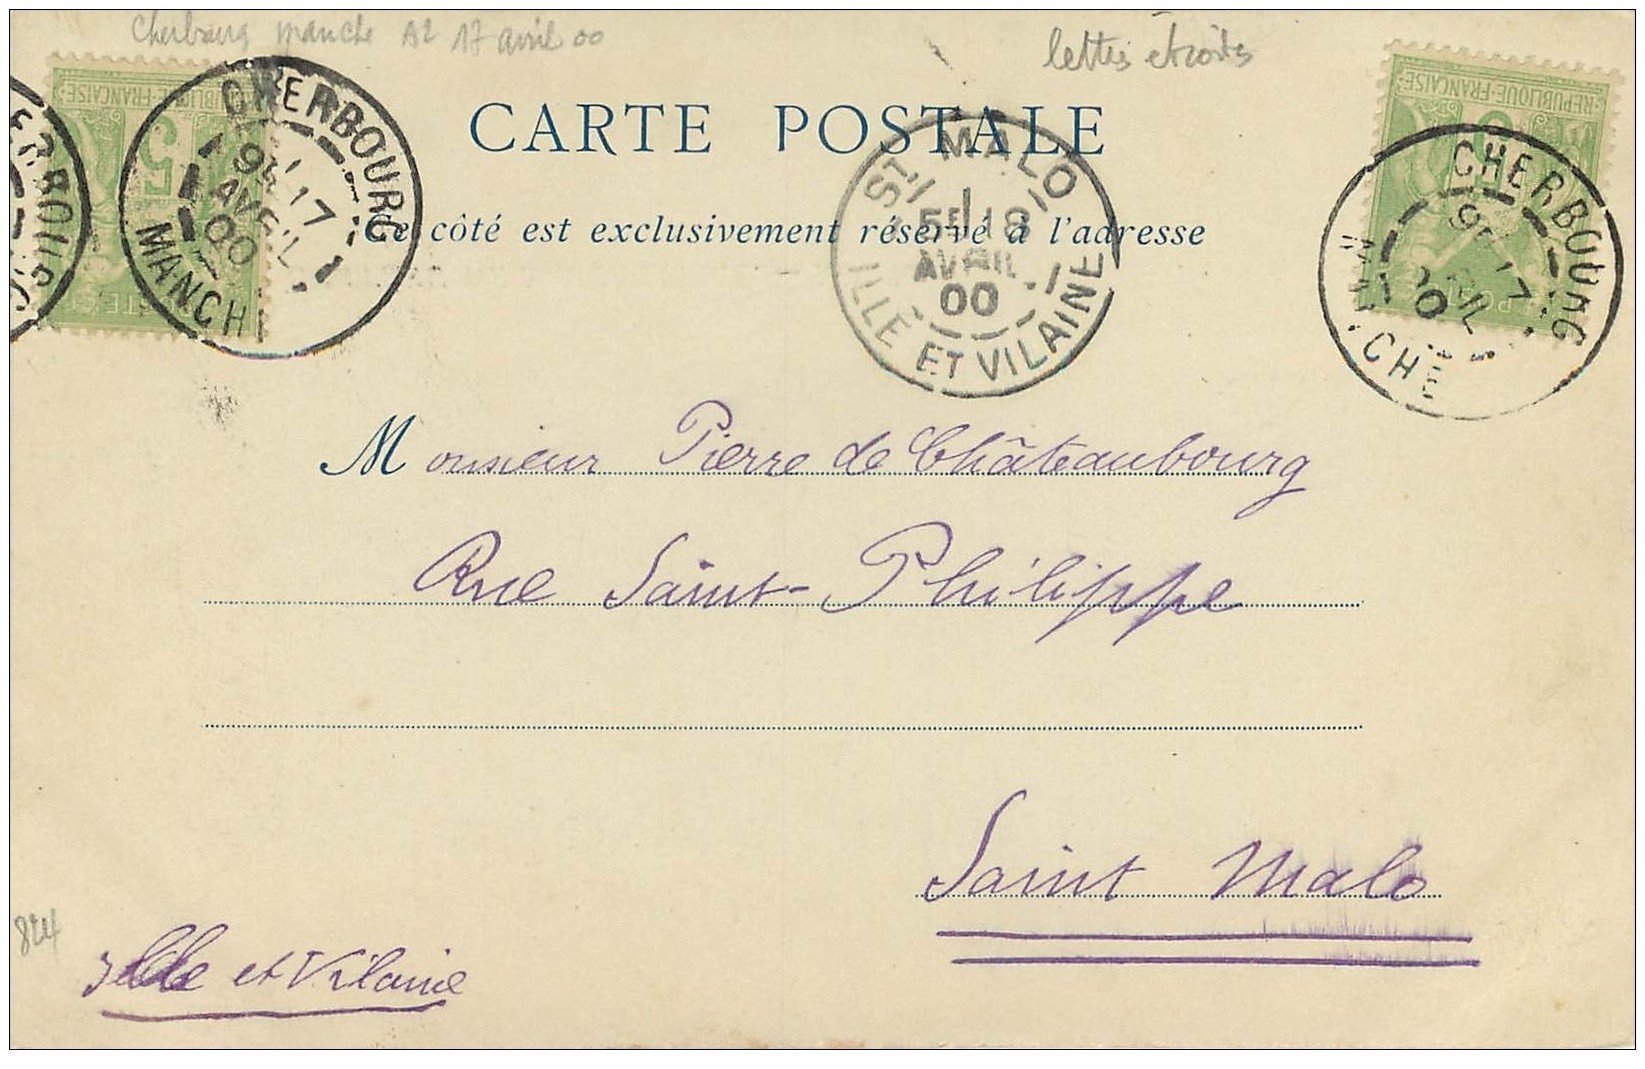 Cherbourg manche A2 17 avril 00
lettres étroites
CARTE POSTALE
Ce côté est exclusivement réservé à l'adresse
REPUBLIQUE FRANÇAISE
CHERBOURG
17
AVRIL
00
MANCHE
ST. MALO
5E 18
AVRIL
00
ILLE ET VILAINE
REPUBLIQUE FRANÇAISE
CHERBOURG
17
00
CHE
Monsieur Pierre de Châteaubourg
Rue Saint-Philippe
Saint Malo
824
Ille et Vilaine